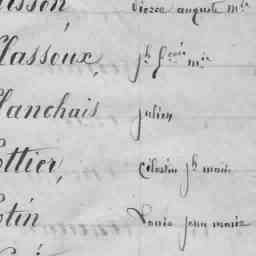 pierre auguste mie
lassoux, jh fcois mie
lanchais julien
ottier, Célestin jh marie
otin Louis jean marie